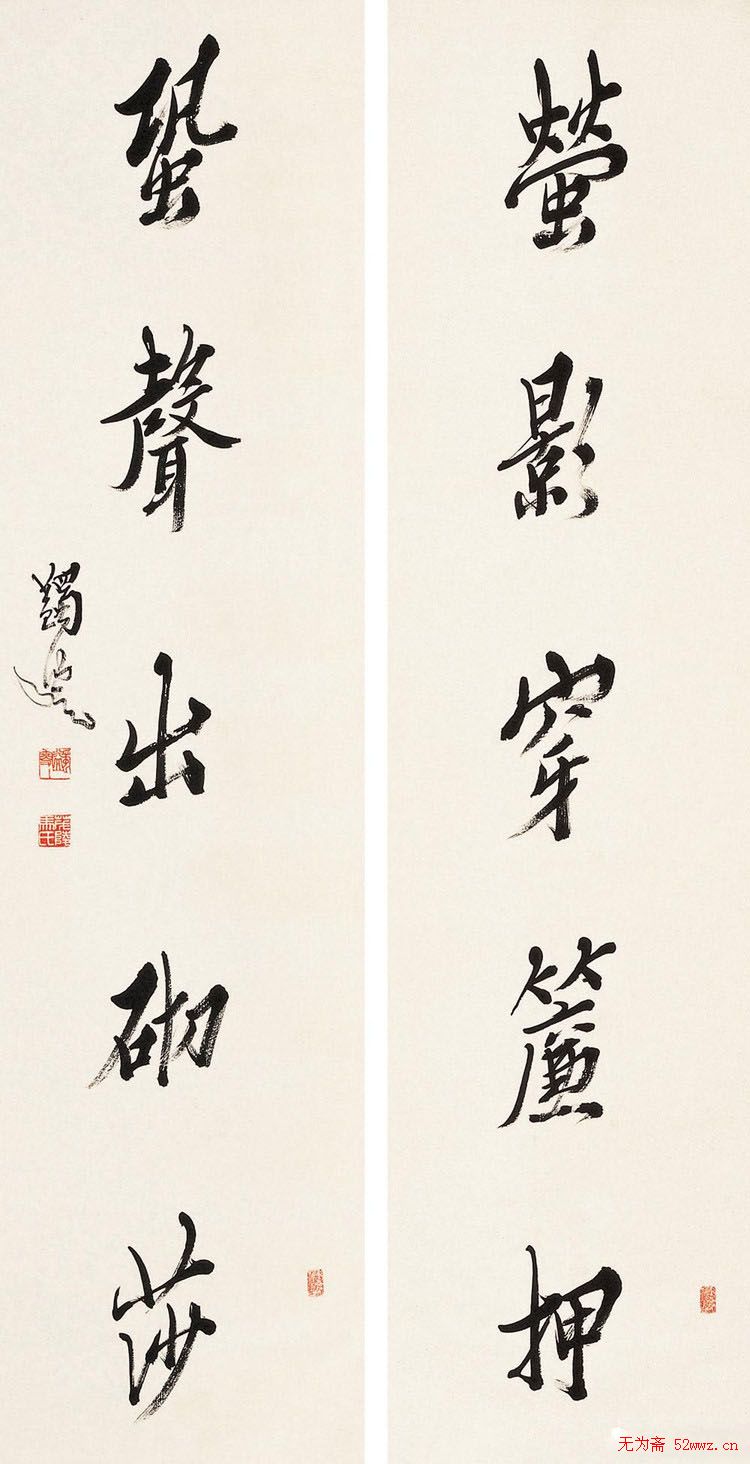 螢影穿簾押
蛩聲出砌莎
蠲叟
无为斋 52wwz.cn